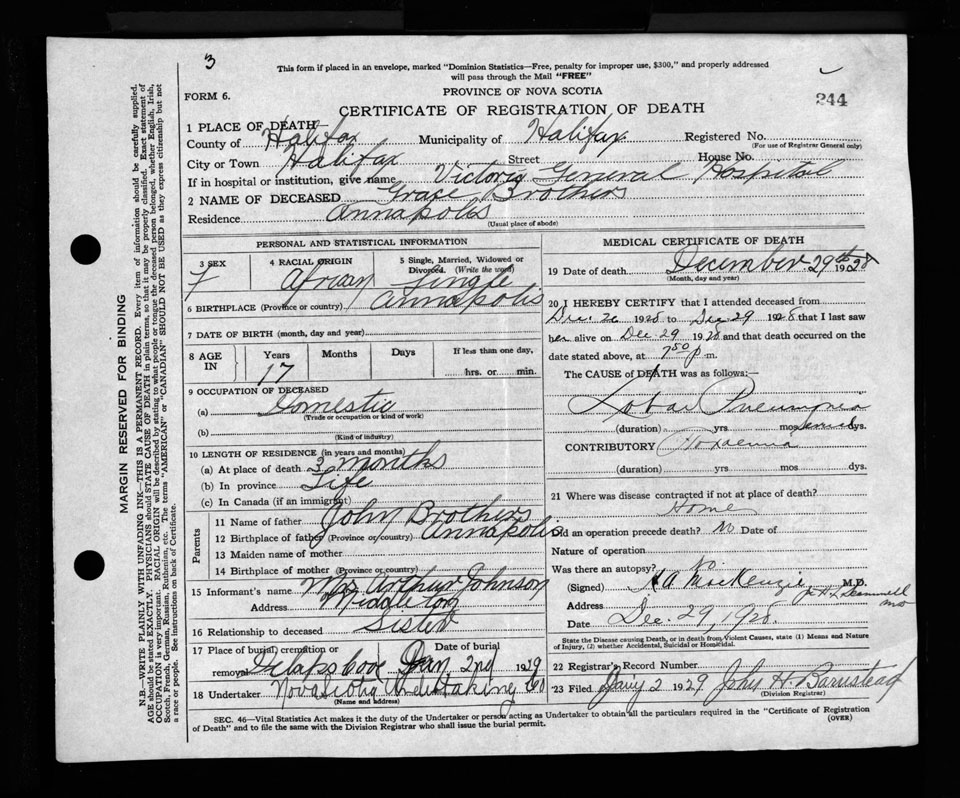 3
This form if placed in an envelope, marked "Dominion Statistics—Free, penalty for improper use, $300," and properly addressed
will pass through the Mail "FREE"
FORM 6.
PROVINCE OF NOVA SCOTIA
244
CERTIFICATE OF REGISTRATION OF DEATH
1 PLACE OF DEATH—
County of Halifax Municipality of Halifax Registered No.
(For use of Registrar General only)
City or Town Halifax Street House No.
If in hospital or institution, give name Victoria General Hospital
2 NAME OF DECEASED Grace Brothers
Residence Annapolis
(Usual place of abode)
PERSONAL AND STATISTICAL INFORMATION
3 SEX F
4 RACIAL ORIGIN African
5 Single, Married, Widowed or Divorced. (Write the word) Single
6 BIRTHPLACE (Province or country) Annapolis
7 DATE OF BIRTH (month, day and year)
8 AGE IN Years 17 Months Days If less than one day, hrs. or min.
9 OCCUPATION OF DECEASED
(a) Domestic
(Trade or occupation or kind of work)
(b)
(Kind of industry)
10 LENGTH OF RESIDENCE (in years and months)
(a) At place of death 3 months
(b) In province Life
(c) In Canada (if an immigrant)
Parents
11 Name of father John Brothers
12 Birthplace of father (Province or country) Annapolis
13 Maiden name of mother
14 Birthplace of mother (Province or country)
15 Informant's name Mrs Arthur Johnson
Address Middleton
16 Relationship to deceased Sister
17 Place of burial, cremation or removal Date of burial Jan 2nd 1929
18 Undertaker Nova Scotia Undertaking Co
(Name and address)
MEDICAL CERTIFICATE OF DEATH
19 Date of death December 29th 1928
(Month, day and year)
20 I HEREBY CERTIFY that I attended deceased from
Dec. 26 1928 to Dec 29 1928 that I last saw
her alive on Dec. 29 1928 and that death occurred on the
date stated above, at 7 50 p. m.
The CAUSE of DEATH was as follows:
Lobar Pneumonia
(duration) yrs mos dys.
CONTRIBUTORY Toxaemia
(duration) yrs mos dys.
21 Where was disease contracted if not at place of death?
Home
Did an operation precede death? No Date of
Nature of operation
Was there an autopsy? No
(Signed) H A MacKenzie M.D.
Address
Date Dec. 29, 1928.
State the Disease causing Death, or in death from Violent Causes, state (1) Means and Nature
of Injury, (2) whether Accidental, Suicidal or Homicidal.
22 Registrar's Record Number
23 Filed Jany 2 1929 John H. Barnstead
(Division Registrar)
SEC. 46—Vital Statistics Act makes it the duty of the Undertaker or person acting as Undertaker to obtain all the particulars required in the "Certificate of Registration
of Death" and to file the same with the Division Registrar who shall issue the burial permit.
(OVER)
MARGIN RESERVED FOR BINDING
N.B.—WRITE PLAINLY WITH UNFADING INK—THIS IS A PERMANENT RECORD. Every item of information should be carefully supplied.
AGE should be stated EXACTLY. PHYSICIANS should STATE CAUSE OF DEATH in plain terms, so that it may be properly classified. Exact statement of
OCCUPATION is very important. RACIAL ORIGIN will be described by stating to what people or tongue the deceased person belonged, whether English, Irish,
Scotch, French, German, Russian, Ruthenian, etc. The terms "AMERICAN" or "CANADIAN" SHOULD NOT BE USED as they express citizenship but not
a race or people. See instructions on back of Certificate.